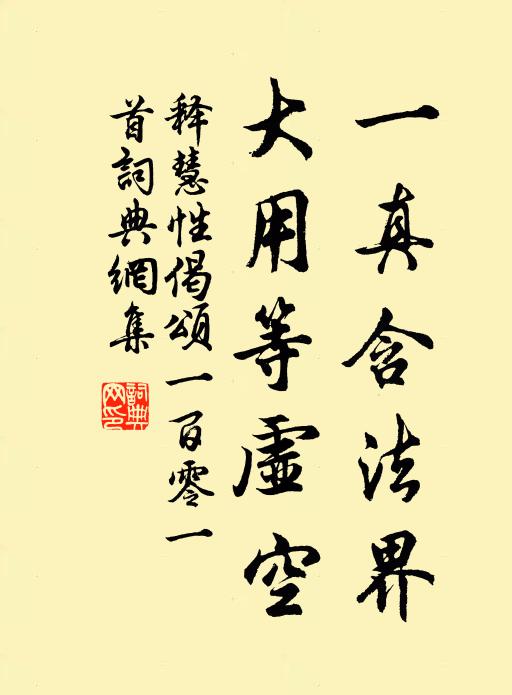 一真含法界
大用等虛空
释慧性偈頌一百零一
首詞典網集
詞典
网印